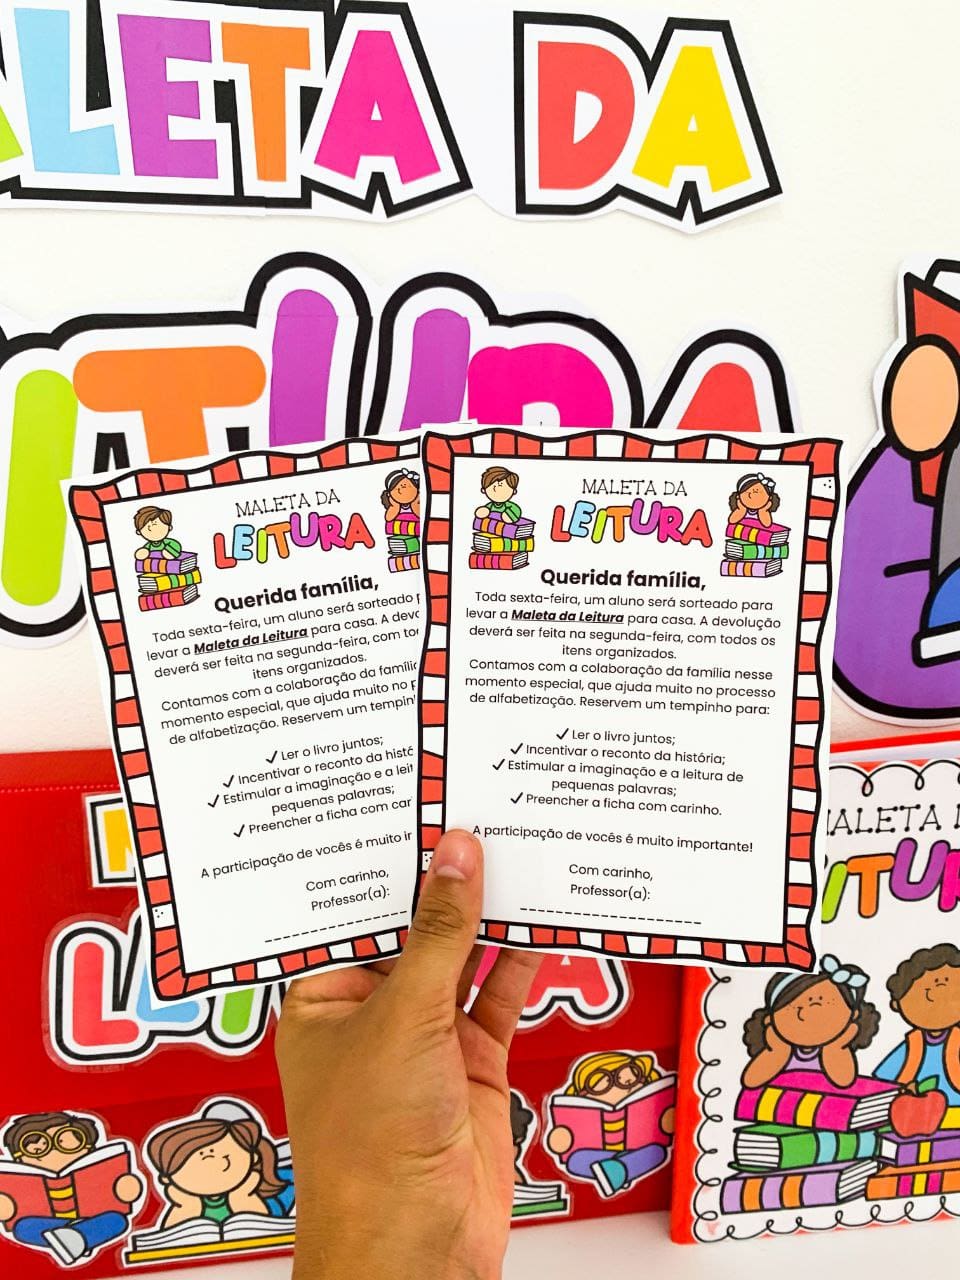 ALETA DA
ITURA
MALETA DA
LEITURA
Querida família,
Toda sexta-feira, um aluno será sorteado
levar a Maleta da Leitura para casa. A
deverá ser feita na segunda-feira, com
itens organizados.
Contamos com a colaboração da
momento especial, que ajuda muito no
de alfabetização. Reservem um
✓ Ler o livro juntos;
✓ Incentivar o reconto da
✓ Estimular a imaginação e a
pequenas palavras;
✓ Preencher a ficha com
A participação de vocês é muito
Com carinho,
Professor(a):
MALETA DA
LEITURA
Querida família,
Toda sexta-feira, um aluno será sorteado para
levar a Maleta da Leitura para casa. A devolução
deverá ser feita na segunda-feira, com todos os
itens organizados.
Contamos com a colaboração da família nesse
momento especial, que ajuda muito no processo
de alfabetização. Reservem um tempinho para:
✓ Ler o livro juntos;
✓ Incentivar o reconto da história;
✓ Estimular a imaginação e a leitura de
pequenas palavras;
✓ Preencher a ficha com carinho.
A participação de vocês é muito importante!
Com carinho,
Professor(a):
ALETA
ITUR